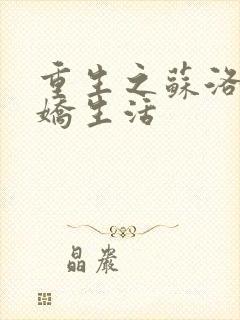 重生之蘇洛
嬌生活
晶巖